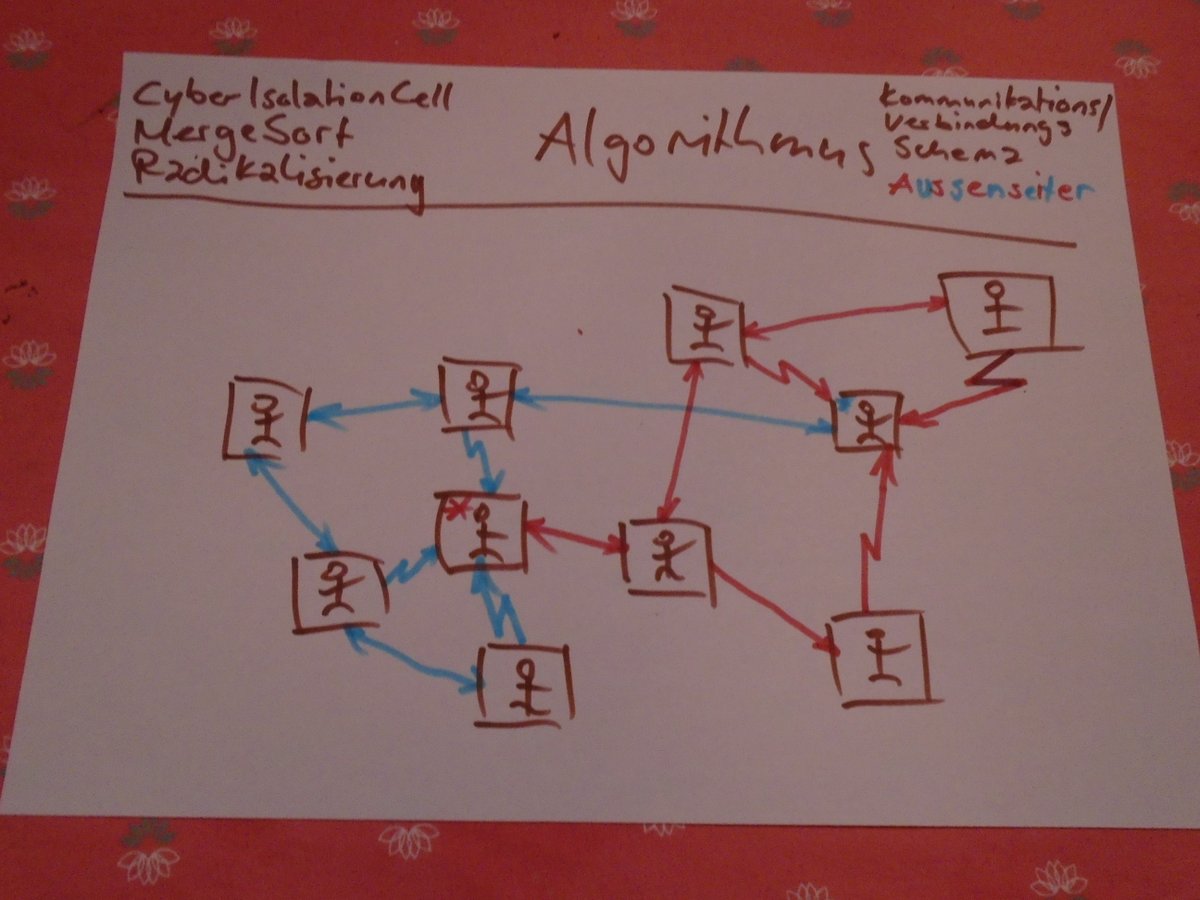 CyberIsolationCell
MergeSort
Radikalisierung
Algorithmus
Kommunikations/
Verbindungs
Schema
Aussenseiter